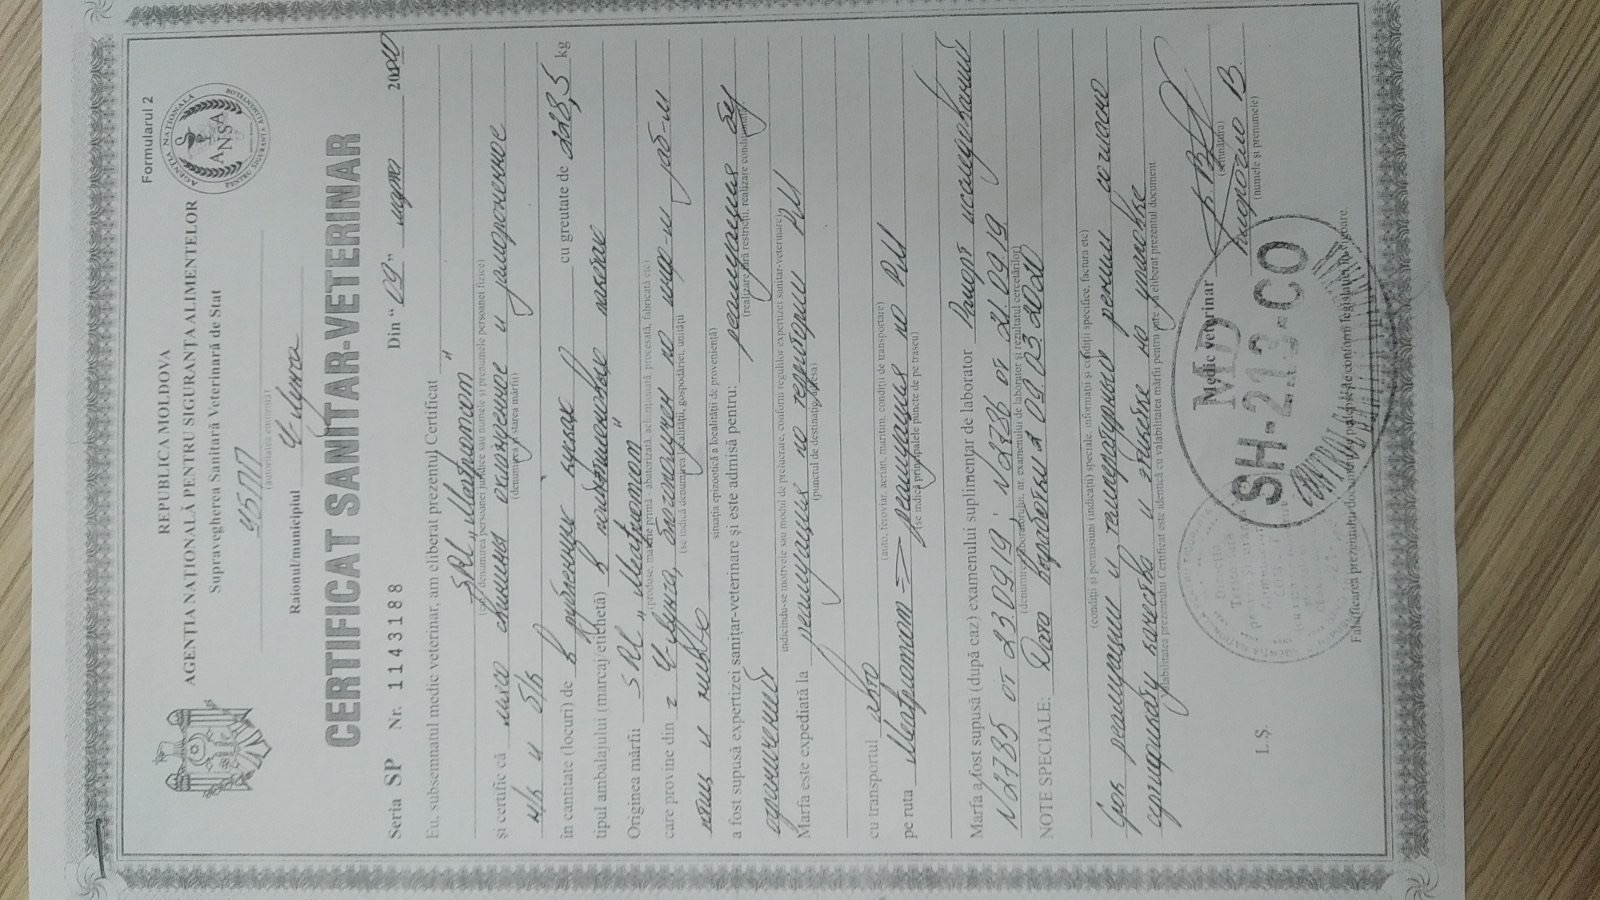 Formularul 2
REPUBLICA MOLDOVA
AGENȚIA NAȚIONALĂ PENTRU SIGURANȚA ALIMENTELOR
Supravegherea Sanitară Veterinară de Stat
(autoritatea emitentă)
Raionul/municipiul
CERTIFICAT SANITAR-VETERINAR
Seria SP Nr. 1143188 Din "09" марта 2020
Eu, subsemnatul medic veterinar, am eliberat prezentul Certificat
SRL „Meatpromom"
(se denumirea persoanei juridice sau numele și prenumele persoanei fizice)
și certific că мясо свиния охлажденное и замороженное
(denumirea și starea mărfii)
н/к и б/к
în cantitate (locuri) de в кусках cu greutatea de 228,5 kg
tipul ambalajului (marcaj/etichetă) в пакеты
Originea mărfii SRL „Meatpromom"
(produse, materie primă - abatorizată, achiziționată, procesată, fabricată etc)
care provine din г. благополучен по
(se indică denumirea localității, gospodăriei, unității)
птиц и
situația epizootică a localității de proveniență)
a fost supusă expertizei sanitar-veterinare și este admisă pentru: реализация без
(realizare fără restricții, realizare condiționată)
ограничений
indicîndu-se motivele sau modul de prelucrare, conform regulilor expertizei sanitar-veterinare)
Marfa este expediată la реализация по территории РМ
(punctul de destinație, adresa)
cu transportul авто
(auto, feroviar, aerian, maritim, condiții de transportare)
pe ruta Meatpromom => реализация по РМ
(se indică principalele puncte de pe traseu)
Marfa a fost supusă (după caz) examenului suplimentar de laborator Рапорт исследований
N2785 от 23.09.19; N2786 от 21.09.19
(denumirea laboratorului, nr. examenului de laborator și rezultatul cercetărilor)
NOTE SPECIALE: Дата выработки 09.03.2020
(condiții și permisiuni (indicații) speciale, informații și condiții specifice, factura etc)
Срок реализации и температурный режим согласно
сертификату качества и этикетке на упаковке
Valabilitatea prezentului Certificat este identică cu valabilitatea mărfii pentru care s-a eliberat prezentul document
Medic veterinar
(semnătura)
(numele și prenumele)
L.Ș.
MD
SH-212-CO
Falsificarea prezentului document se pedepsește conform legislației în vigoare.